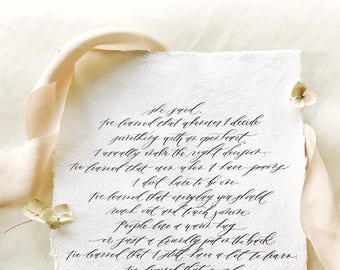 she said,
I've learned that whenever I decide
something with an open heart,
I usually make the right decision.
I've learned that even when I have pains,
I don't have to be one.
I've learned that everyday you should
reach out and touch someone.
People love a warm hug
or just a friendly pat on the back
I've learned that I still have a lot to learn.
I've learned that